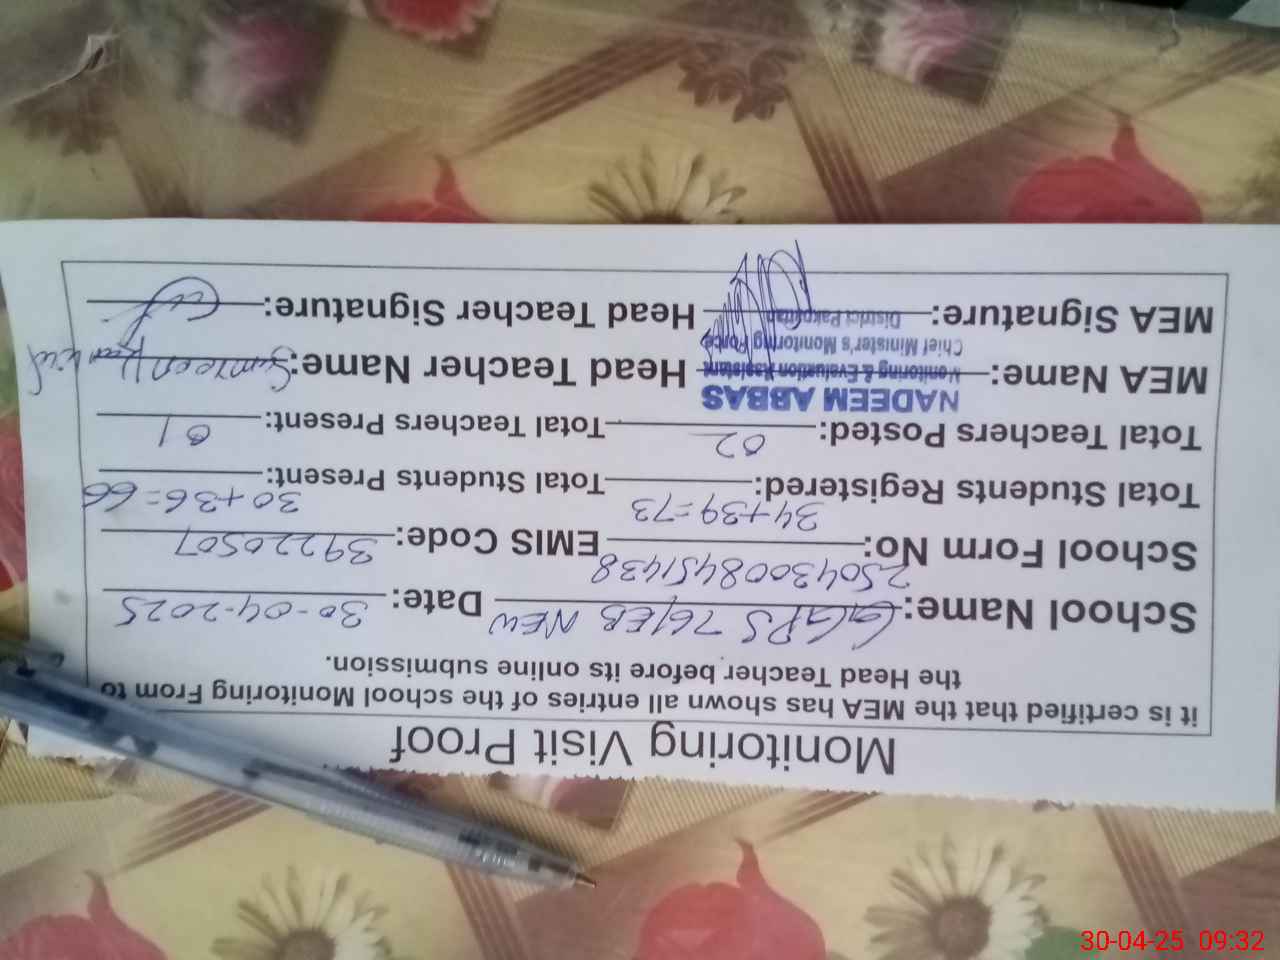 Monitoring Visit Proof
it is certified that the MEA has shown all entries of the school Monitoring From to
the Head Teacher before its online submission.
School Name: GGPS 76/EB NEW Date: 30-04-2025
School Form No: 25043008451438 EMIS Code: 39220507
Total Students Registered: 34+39=73 Total Students Present: 30+36=66
Total Teachers Posted: 02 Total Teachers Present: 01
MEA Name: NADEEM ABBAS Head Teacher Name:
Monitoring & Evaluation Assistant
Chief Minister's Monitoring Force
District Pakpattan
MEA Signature: Head Teacher Signature:
30-04-25 09:32